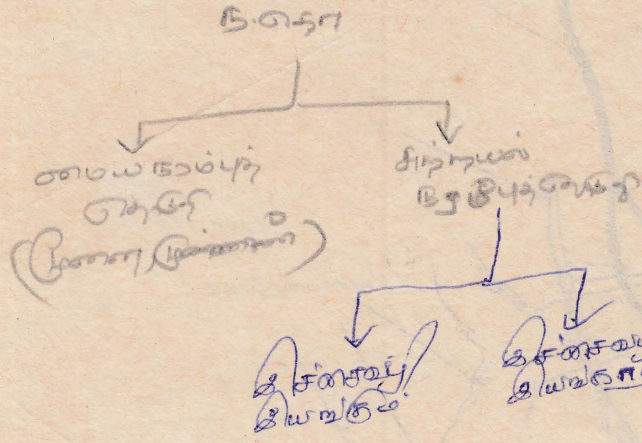 ந.தொ
மைய நரம்புத்
தொகுதி
(மூளை முண்ணாண்)
சுற்றயல்
நரம்புத்தொகுதி
இச்சைவழி
இயங்கும்
இச்சைவ